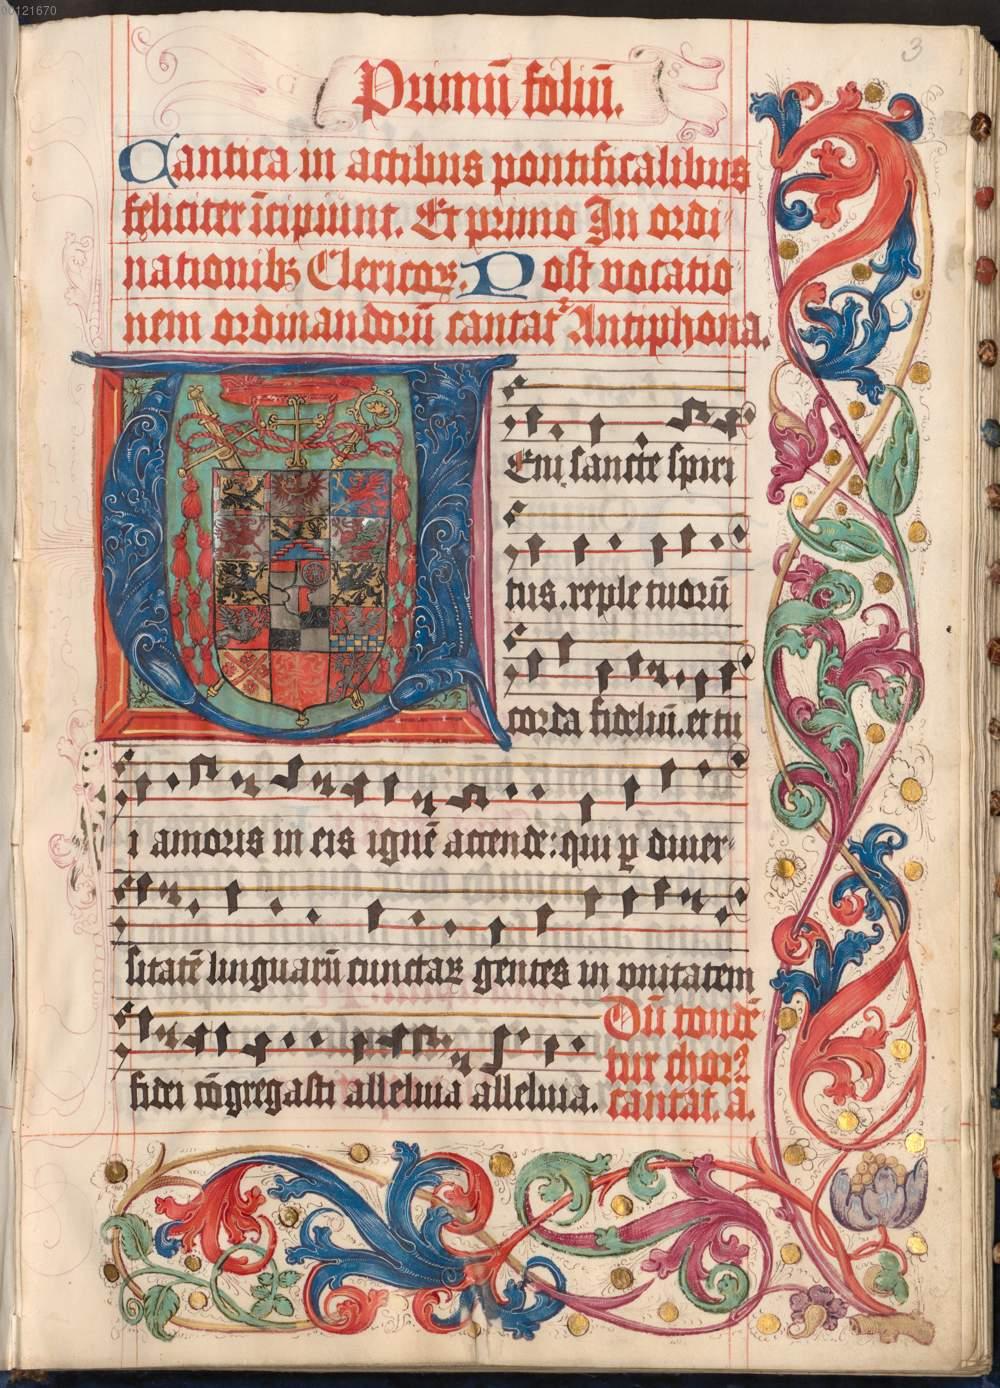 00121670
3
Primū foliū.
Cantica in actibus pontificalibus
feliciter īcipiunt. Et primo In ordi
nationibꝫ Clericoꝝ. Post vocatio
nem ordinandorū cantatᷣ Antiphona.
VEni sancte spiri
tus. reple tuorū
corda fideliū. et tu
i amoris in eis ignē accende: qui ꝑ diuer
sitatē linguarū cunctaꝝ gentes in vnitatem
fidei cōgregasti alleluia alleluia.
Dū tondē
tur
cantat. a.